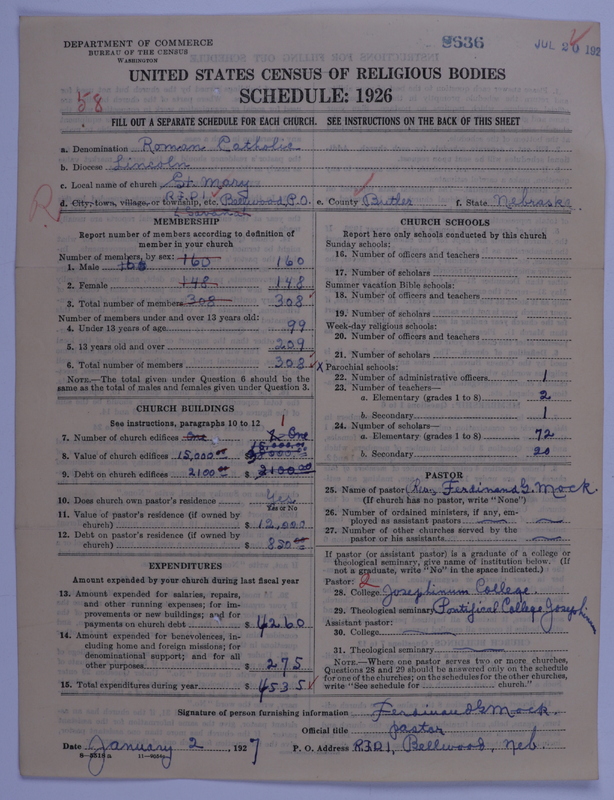 DEPARTMENT OF COMMERCE
BUREAU OF THE CENSUS
WASHINGTON
9636
JUL 20 192
UNITED STATES CENSUS OF RELIGIOUS BODIES
SCHEDULE: 1926
58
FILL OUT A SEPARATE SCHEDULE FOR EACH CHURCH. SEE INSTRUCTIONS ON THE BACK OF THIS SHEET
a. Denomination Roman Catholic
b. Diocese Lincoln
c. Local name of church St. Mary
R
d. City, town, village, or township, etc. R.F.D.1 Bellwood P.O. e. County Butler f. State Nebraska
MEMBERSHIP
Report number of members according to definition of
member in your church
Number of members, by sex:
1. Male 160 160
2. Female 148 148
3. Total number of members 308 308
Number of members under and over 13 years old:
4. Under 13 years of age 99
5. 13 years old and over 209
6. Total number of members 308
NOTE.—The total given under Question 6 should be the
same as the total of males and females given under Question 3.
CHURCH BUILDINGS
See instructions, paragraphs 10 to 12
1
7. Number of church edifices One One
8. Value of church edifices 15,000.00 $ 15,000.00
9. Debt on church edifices 2100.00 $ 2100.00
10. Does church own pastor's residence Yes
Yes or No
11. Value of pastor's residence (if owned by
church) $ 12,000
12. Debt on pastor's residence (if owned by
church) $ 820.00
EXPENDITURES
Amount expended by your church during last fiscal year
13. Amount expended for salaries, repairs,
and other running expenses; for im-
provements or new buildings; and for
payments on church debt $ 4260
14. Amount expended for benevolences, in-
cluding home and foreign missions; for
denominational support; and for all
other purposes $ 275
15. Total expenditures during year $ 4535
CHURCH SCHOOLS
Report here only schools conducted by this church
Sunday schools:
16. Number of officers and teachers
17. Number of scholars
Summer vacation Bible schools:
18. Number of officers and teachers
19. Number of scholars
Week-day religious schools:
20. Number of officers and teachers
21. Number of scholars
X Parochial schools:
22. Number of administrative officers 1
23. Number of teachers—
a. Elementary (grades 1 to 8) 2
b. Secondary 1
24. Number of scholars—
a. Elementary (grades 1 to 8) 72
b. Secondary 20
PASTOR
25. Name of pastor (Rev.) Ferdinand G. Mock
(If church has no pastor, write "None")
26. Number of ordained ministers, if any, em-
ployed as assistant pastors
27. Number of other churches served by the
pastor or his assistants
If pastor (or assistant pastor) is a graduate of a college or
theological seminary, give name of institution below. (If
not a graduate, write "No" in the space indicated.)
Pastor: 2
28. College Josephinum College
29. Theological seminary Pontifical College Josephinum
Assistant pastor:
30. College
31. Theological seminary
NOTE.—Where one pastor serves two or more churches,
Questions 28 and 29 should be answered only on the schedule
for one of the churches; on the schedules for the other churches,
write "See schedule for church."
Signature of person furnishing information Ferdinand G Mock
Official title pastor
Date January 2, 1927 P. O. Address R.F.D.1, Bellwood, Neb.